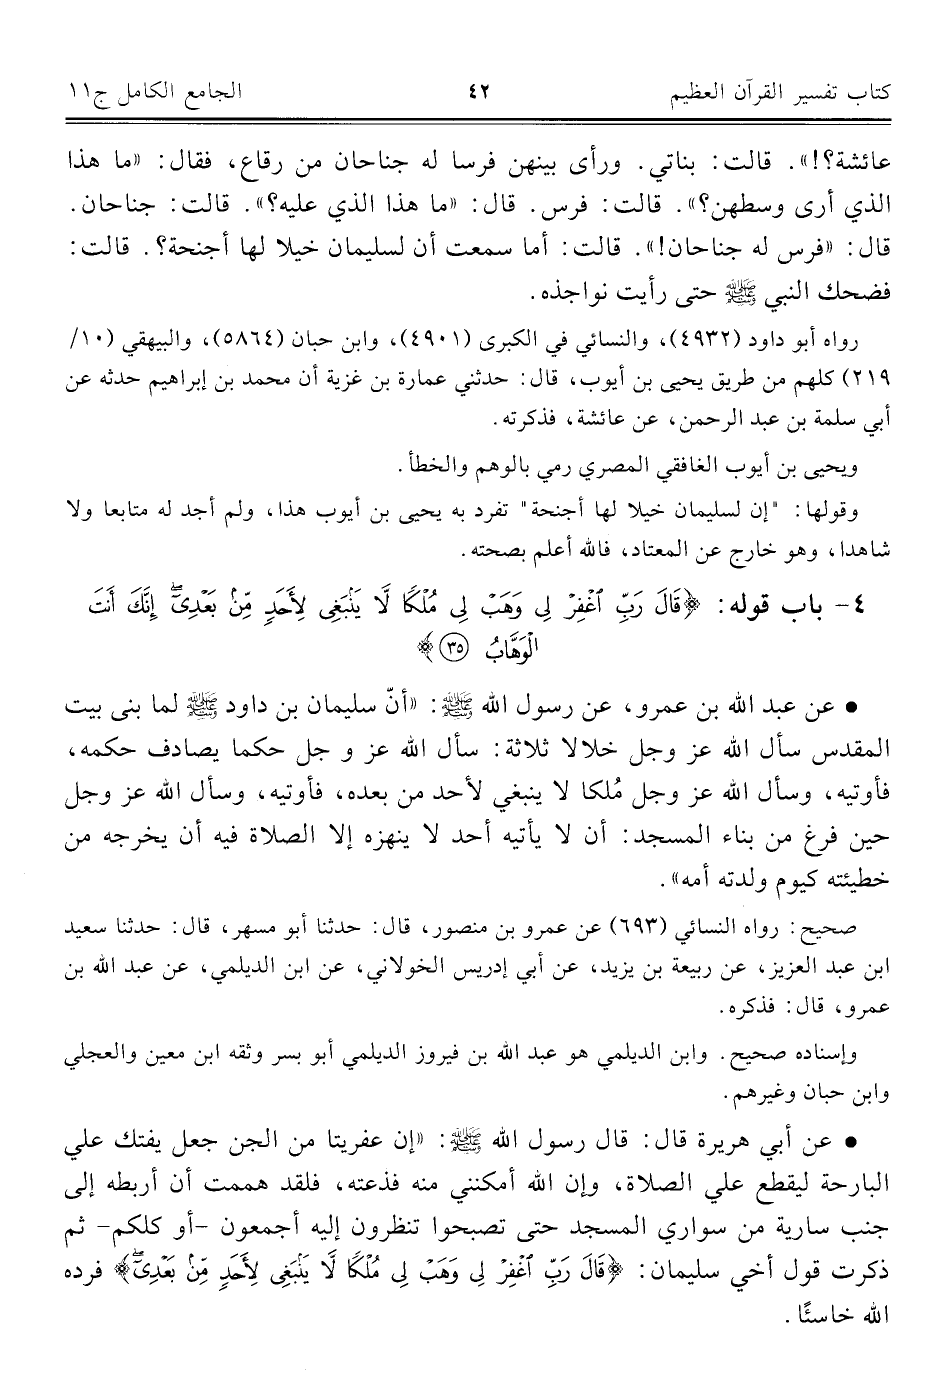 كتاب تفسير القرآن العظيم ٤٢ الجامع الكامل ج١١
عائشة؟!». قالت: بناتي. ورأى بينهن فرسا له جناحان من رقاع، فقال: «ما هذا
الذي أرى وسطهن؟». قالت: فرس. قال: «ما هذا الذي عليه؟». قالت: جناحان.
قال: «فرس له جناحان!». قالت: أما سمعت أن لسليمان خيلا لها أجنحة؟. قالت:
فضحك النبي ﷺ حتى رأيت نواجذه.
رواه أبو داود (٤٩٣٢)، والنسائي في الكبرى (٤٩٠١)، وابن حبان (٥٨٦٤)، والبيهقي (١٠/
٢١٩) كلهم من طريق يحيى بن أيوب، قال: حدثني عمارة بن غزية أن محمد بن إبراهيم حدثه عن
أبي سلمة بن عبد الرحمن، عن عائشة، فذكرته.
ويحيى بن أيوب الغافقي المصري رمي بالوهم والخطأ.
وقولها: "إن لسليمان خيلا لها أجنحة" تفرد به يحيى بن أيوب هذا، ولم أجد له متابعا ولا
شاهدا، وهو خارج عن المعتاد، فالله أعلم بصحته.
٤- باب قوله: ﴿قَالَ رَبِّ ٱغْفِرْ لِى وَهَبْ لِى مُلْكًا لَّا يَنۢبَغِى لِأَحَدٍ مِّنۢ بَعْدِىٓ ۖ إِنَّكَ أَنتَ
ٱلْوَهَّابُ ٣٥﴾
• عن عبد الله بن عمرو، عن رسول الله ﷺ: «أنّ سليمان بن داود ﷺ لما بنى بيت
المقدس سأل الله عز وجل خلالا ثلاثة: سأل الله عز و جل حكما يصادف حكمه،
فأوتيه، وسأل الله عز وجل مُلكا لا ينبغي لأحد من بعده، فأوتيه، وسأل الله عز وجل
حين فرغ من بناء المسجد: أن لا يأتيه أحد لا ينهزه إلا الصلاة فيه أن يخرجه من
خطيئته كيوم ولدته أمه».
صحيح: رواه النسائي (٦٩٣) عن عمرو بن منصور، قال: حدثنا أبو مسهر، قال: حدثنا سعيد
ابن عبد العزيز، عن ربيعة بن يزيد، عن أبي إدريس الخولاني، عن ابن الديلمي، عن عبد الله بن
عمرو، قال: فذكره.
وإسناده صحيح. وابن الديلمي هو عبد الله بن فيروز الديلمي أبو بسر وثقه ابن معين والعجلي
وابن حبان وغيرهم.
• عن أبي هريرة قال: قال رسول الله ﷺ: «إن عفريتا من الجن جعل يفتك علي
البارحة ليقطع علي الصلاة، وإن الله أمكنني منه فذعته، فلقد هممت أن أربطه إلى
جنب سارية من سواري المسجد حتى تصبحوا تنظرون إليه أجمعون -أو كلكم- ثم
ذكرت قول أخي سليمان: ﴿قَالَ رَبِّ ٱغْفِرْ لِى وَهَبْ لِى مُلْكًا لَّا يَنۢبَغِى لِأَحَدٍ مِّنۢ بَعْدِىٓ ۖ﴾ فرده
الله خاسئًا.